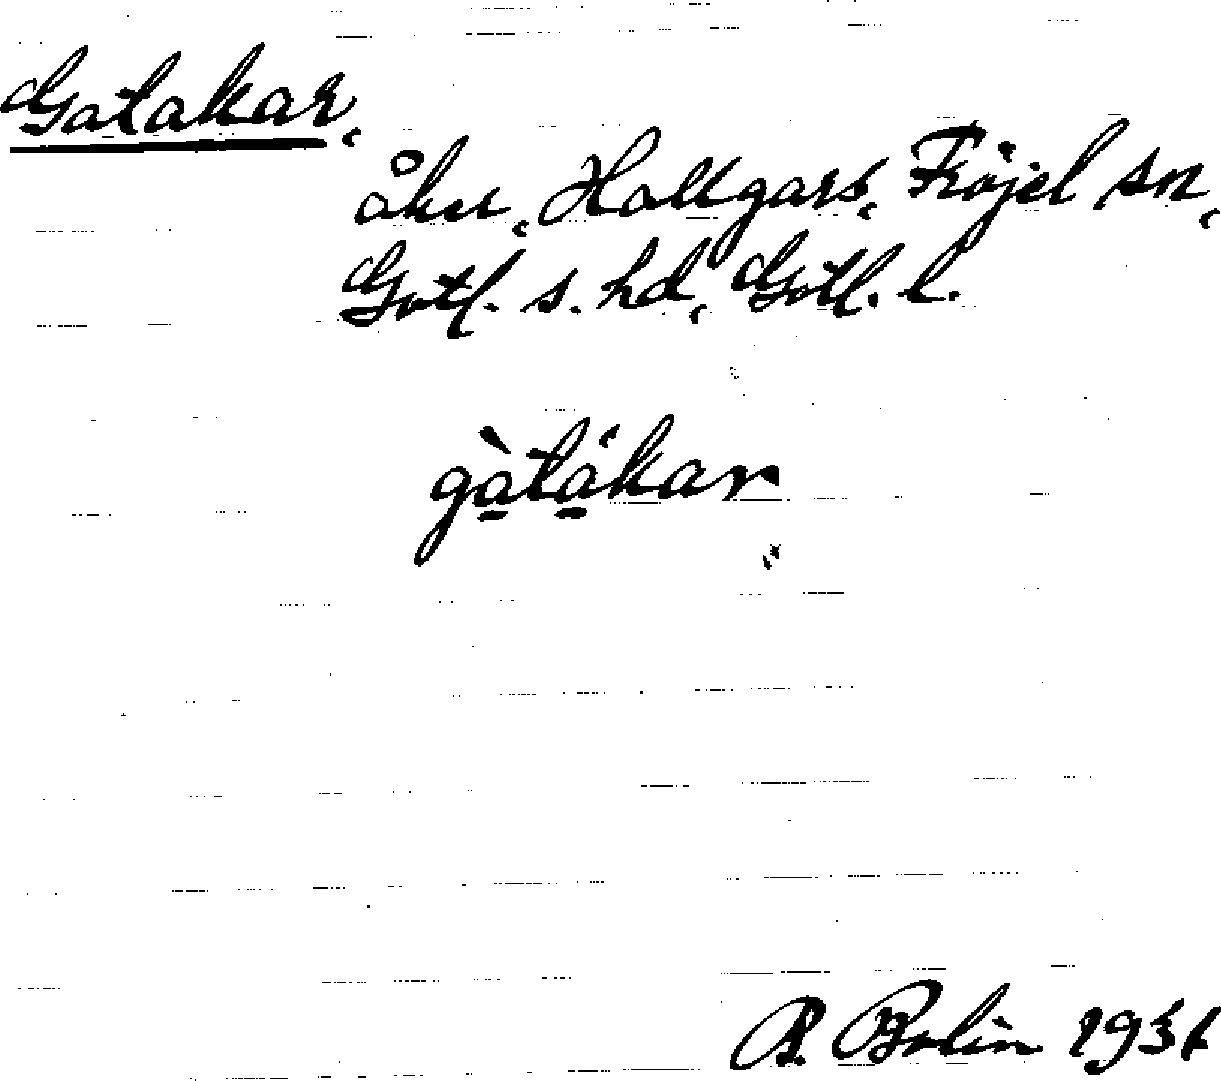 Gatakar,
åker, Hallgars, Fröjel sn,
Gotl. s. hd, Gotl. l.
gàtákar
Bolin 1931